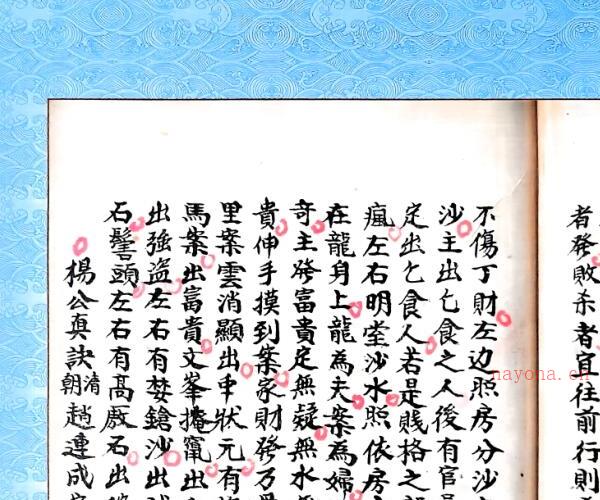 者發敗杀者宜往前行則
不傷丁財左边照房分沙
沙主出乞食之人後有官
定出乞食人若是賤格之
瘋左右明堂沙水照依房
在龍身上龍為夫案為婦
奇主發富貴定無疑無水
貴伸手摸到案家財發乃
里案雲消顯出中狀元有
馬案出富貴文峯掩竃出
出強盜左右有埜鎗沙出
石髻頭左右有高厰石出
楊公真訣清朝趙連成
nayona.cn